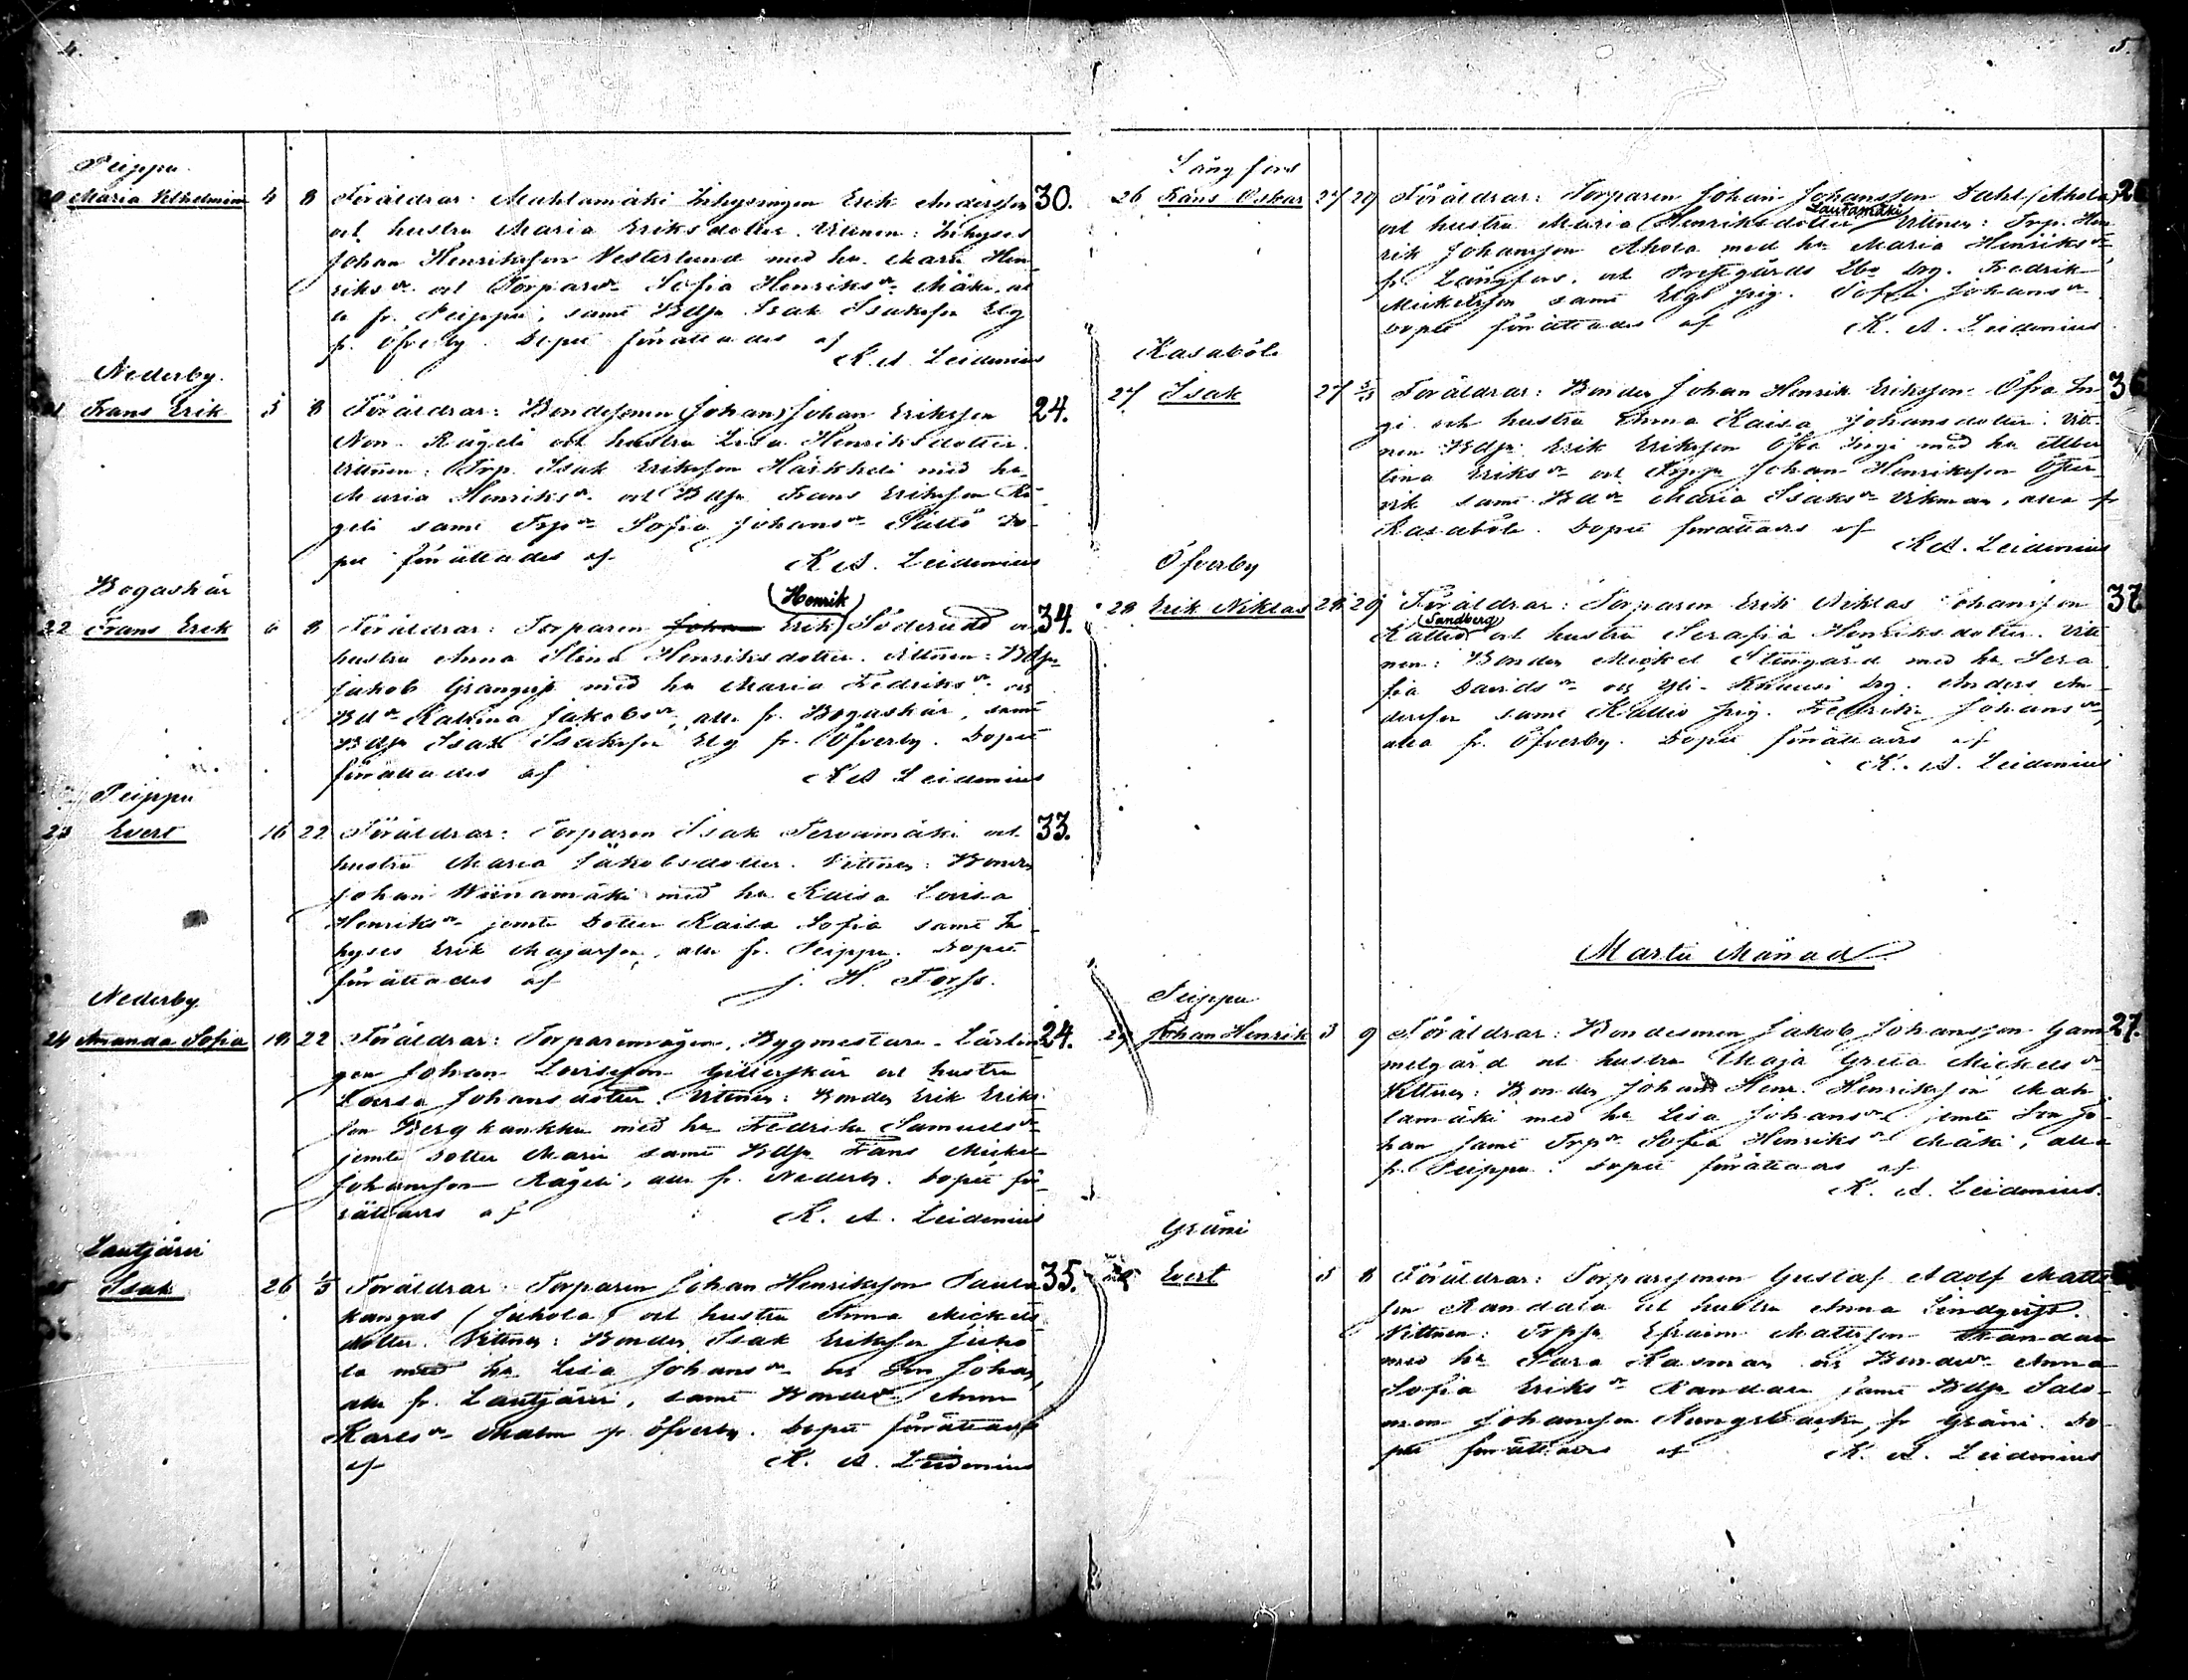 4.
Peippu.
20 Maria Vilhelmina 4 8 Föräldrar: Mahlamäki Inhysingen Erik Andersson 30.
och hustru Maria Eriksdotter. Vittnen: Inhyses
Johan Henriksson Vesterlund med hu. Maria Hen-
riksdr. och Torparedr. Sofia Henriksdr. Mäki, al-
la fr. Peippu, samt Bdsn Isak Isaksson Elg
fr. Öfverby. Dopet förrättades af
K. A. Leidenius
Nederby.
21 Frans Erik 5 8 Föräldrar: Bondesonen (Johan) Johan Eriksson 24.
Non-Rågeli och hustru Lisa Henriksdotter.
Vittnen: Trp. Isak Eriksson med hu
Maria Henriksdr. och Bdsn Frans Eriksson Rå-
geli samt Trpdr. Sofia Johansdr. Do-
pet förrättades af K. A. Leidenius
Bogaskär
(Henrik)
22 Frans Erik 6 8 Föräldrar: Torparen Johan Erik Söderlund o. 34.
hustru Anna Stina Henriksdotter. Vittnen: Bdsn
Jakob Grangvist med hu Maria Fredriksdr. och
Bddr. Katrina Jakobsdr, alla fr. Bogaskär, samt
Bdsn Isak Isaksson Elg fr. Öfverby. Dopet
förrättades af K A Leidenius
Peippu
23 Evert 16 22 Föräldrar: Torparen Isak Tervamäki och 33.
hustru Maria Jakobsdotter. Vittnen: Bonden
Johan Wiinamäki med hu Kaisa Lovisa
Henriksdr. jemte Dotter Kaisa Sofia samt In-
hyses Erik Majorsson, alla fr. Peippu. Dopet
förrättades af J. H. Torfs.
Nederby
24 Amanda Sofia 18 22 Föräldrar: Torparemågen, Bygmestare-Lärlin- 24.
gen Johan Lovisson Gillerskär och hustru
Lovisa Johansdotter. Vittnen: Bonden Erik Eriks-
son Bergkankku med hu Fredrika Samuelsdr
jemte dotter Maria samt Bdsn Frans Mickel
Johansson Rågeli, alla fr. Nederby. Dopet för-
rättades af K. A. Leidenius
Lautjärvi
25 Isak 26 1/3 Föräldrar: Torparen Johan Henriksson 35.
kangas (Juhola) och hustru Anna Mickels-
dotter. Vittnen: Bonden Isak Eriksson Juho-
la med hu Lisa Johansdr och Son Johan,
alla fr. Lautjärvi, samt Bondedr Anna
Karlsdr. Malm fr. Öfverby. Dopet förrättades
af K. A. Leidenius
5.
Långfors
26 Frans Oskar 27 29 Föräldrar: Torparen Johan Johansson Dahl (Ahola)
Lautamäki
och hustru Maria Henriksdotter Vittnen: Trp. Hen-
rik Johansson Ahola med hu Maria Henriksdr
fr. Långfors, och Prestgårds Ebo Drg. Fredrik
Mickelsson samt Elgs pig. Sofia Johansdr.
Dopet förrättades af K. A. Leidenius
Kasaböle
27 Isak 27 5/3 Föräldrar: Bonden Johan Henrik Eriksson Öfra In-
gi och hustru Anna Kaisa Johansdotter. Vitt-
nen Bdsn Erik Eriksson Öfra Ingi med hu Alber-
tina Eriksdr och Johan Henriksson
samt Bddr Maria Isaksdr Vikman, alla fr
Kasaböle. Dopet förrättades af
K A. Leidenius
Öfverby
28 Erik Niklas 28 29 Föräldrar: Torparen Erik Niklas Johansson 37.
(Sandberg)
Kallio och hustru Serafia Henriksdotter. Vitt-
nen: Bonden Mickel Stengård med hu Sera-
fia Davidsdr och Yli-Knuusi Drg. Anders An-
dersson samt Kallio pig. Fredrika Johansdr,
alla fr. Öfverby. Dopet förrättades af
K. A. Leidenius
Martii Månad
Peippu
29 Johan Henrik 3 9 Föräldrar: Bondesonen Jakob Johansson Gam- 27.
melgård och hustru Maja Greta Mickelsdr
Vittnen: Bonden Johan Henr. Henriksson Mah-
lamäki med hu Lisa Johansdr jemte Son Jo-
han samt Trpdr. Sofia Henriksdr Mäki, alla
fr. Peippu. Dopet förrättades af
K. A. Leidenius.
Gräni
Evert 5 8 Föräldrar: Torparesonen Gustaf Adolf Matts-
son Randala och hustru Anna Lindqvist.
Vittnen: Trpsn Efraim Mattsson Randala
med hu Sara Kasman och Bondedr Anna
Sofia Eriksdr Randala samt Bdsn Salo-
mon Johansson Kungsbacka, fr Gräni. Do-
pet förrättades af K. A. Leidenius